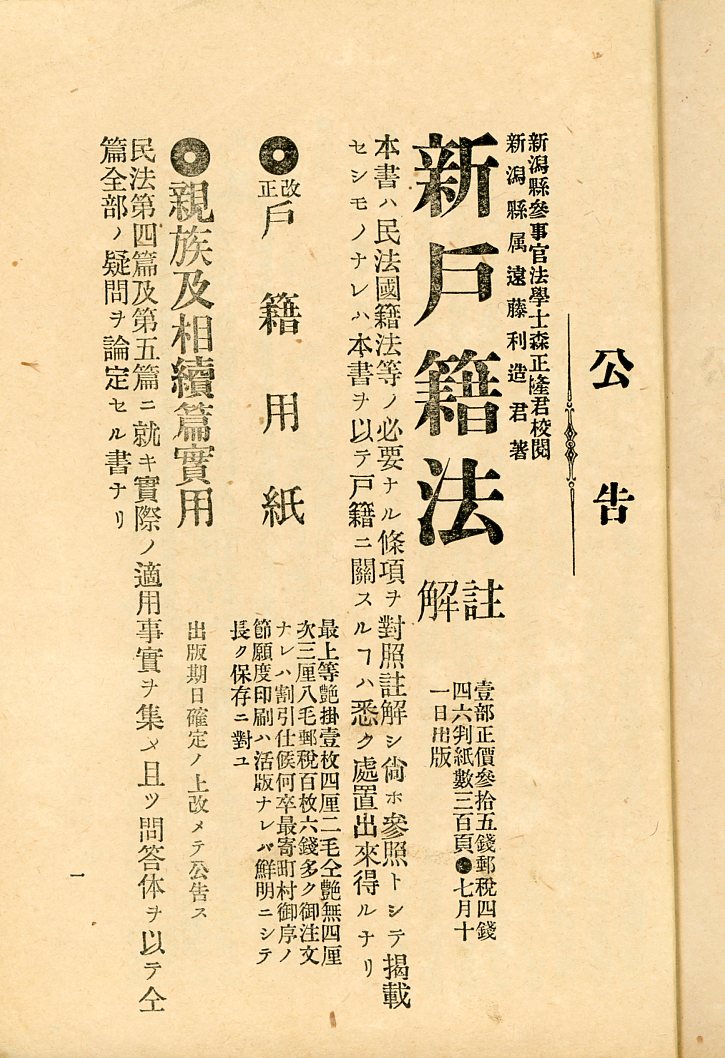 公告
新潟縣參事官法學士森正隆君校閲
新潟縣属遠藤利造君著
新戶籍法註解
壹部正價參拾五錢郵税四錢
四六判紙數三百頁●七月十
一日出版
本書ハ民法國籍法等ノ必要ナル條項ヲ對照註解シ尙ホ參照トシテ揭載
セシモノナレハ本書ヲ以テ戸籍ニ關スルヿハ悉ク處置出來得ルナリ
◉改正戶籍用紙
最上等艶掛壹枚四厘二毛仝艶無四厘
次三厘八毛郵税百枚六錢多ク御注文
ナレハ割引仕候何卒最寄町村御序ノ
節願度印刷ハ活版ナレバ鮮明ニシテ
長ク保存ニ對ユ
◉親族及相續篇實用
出版期日確定ノ上改メテ公告ス
民法第四篇及第五篇ニ就キ實際ノ適用事實ヲ集メ且ツ問答体ヲ以テ仝
篇全部ノ疑問ヲ論定セル書ナリ
一